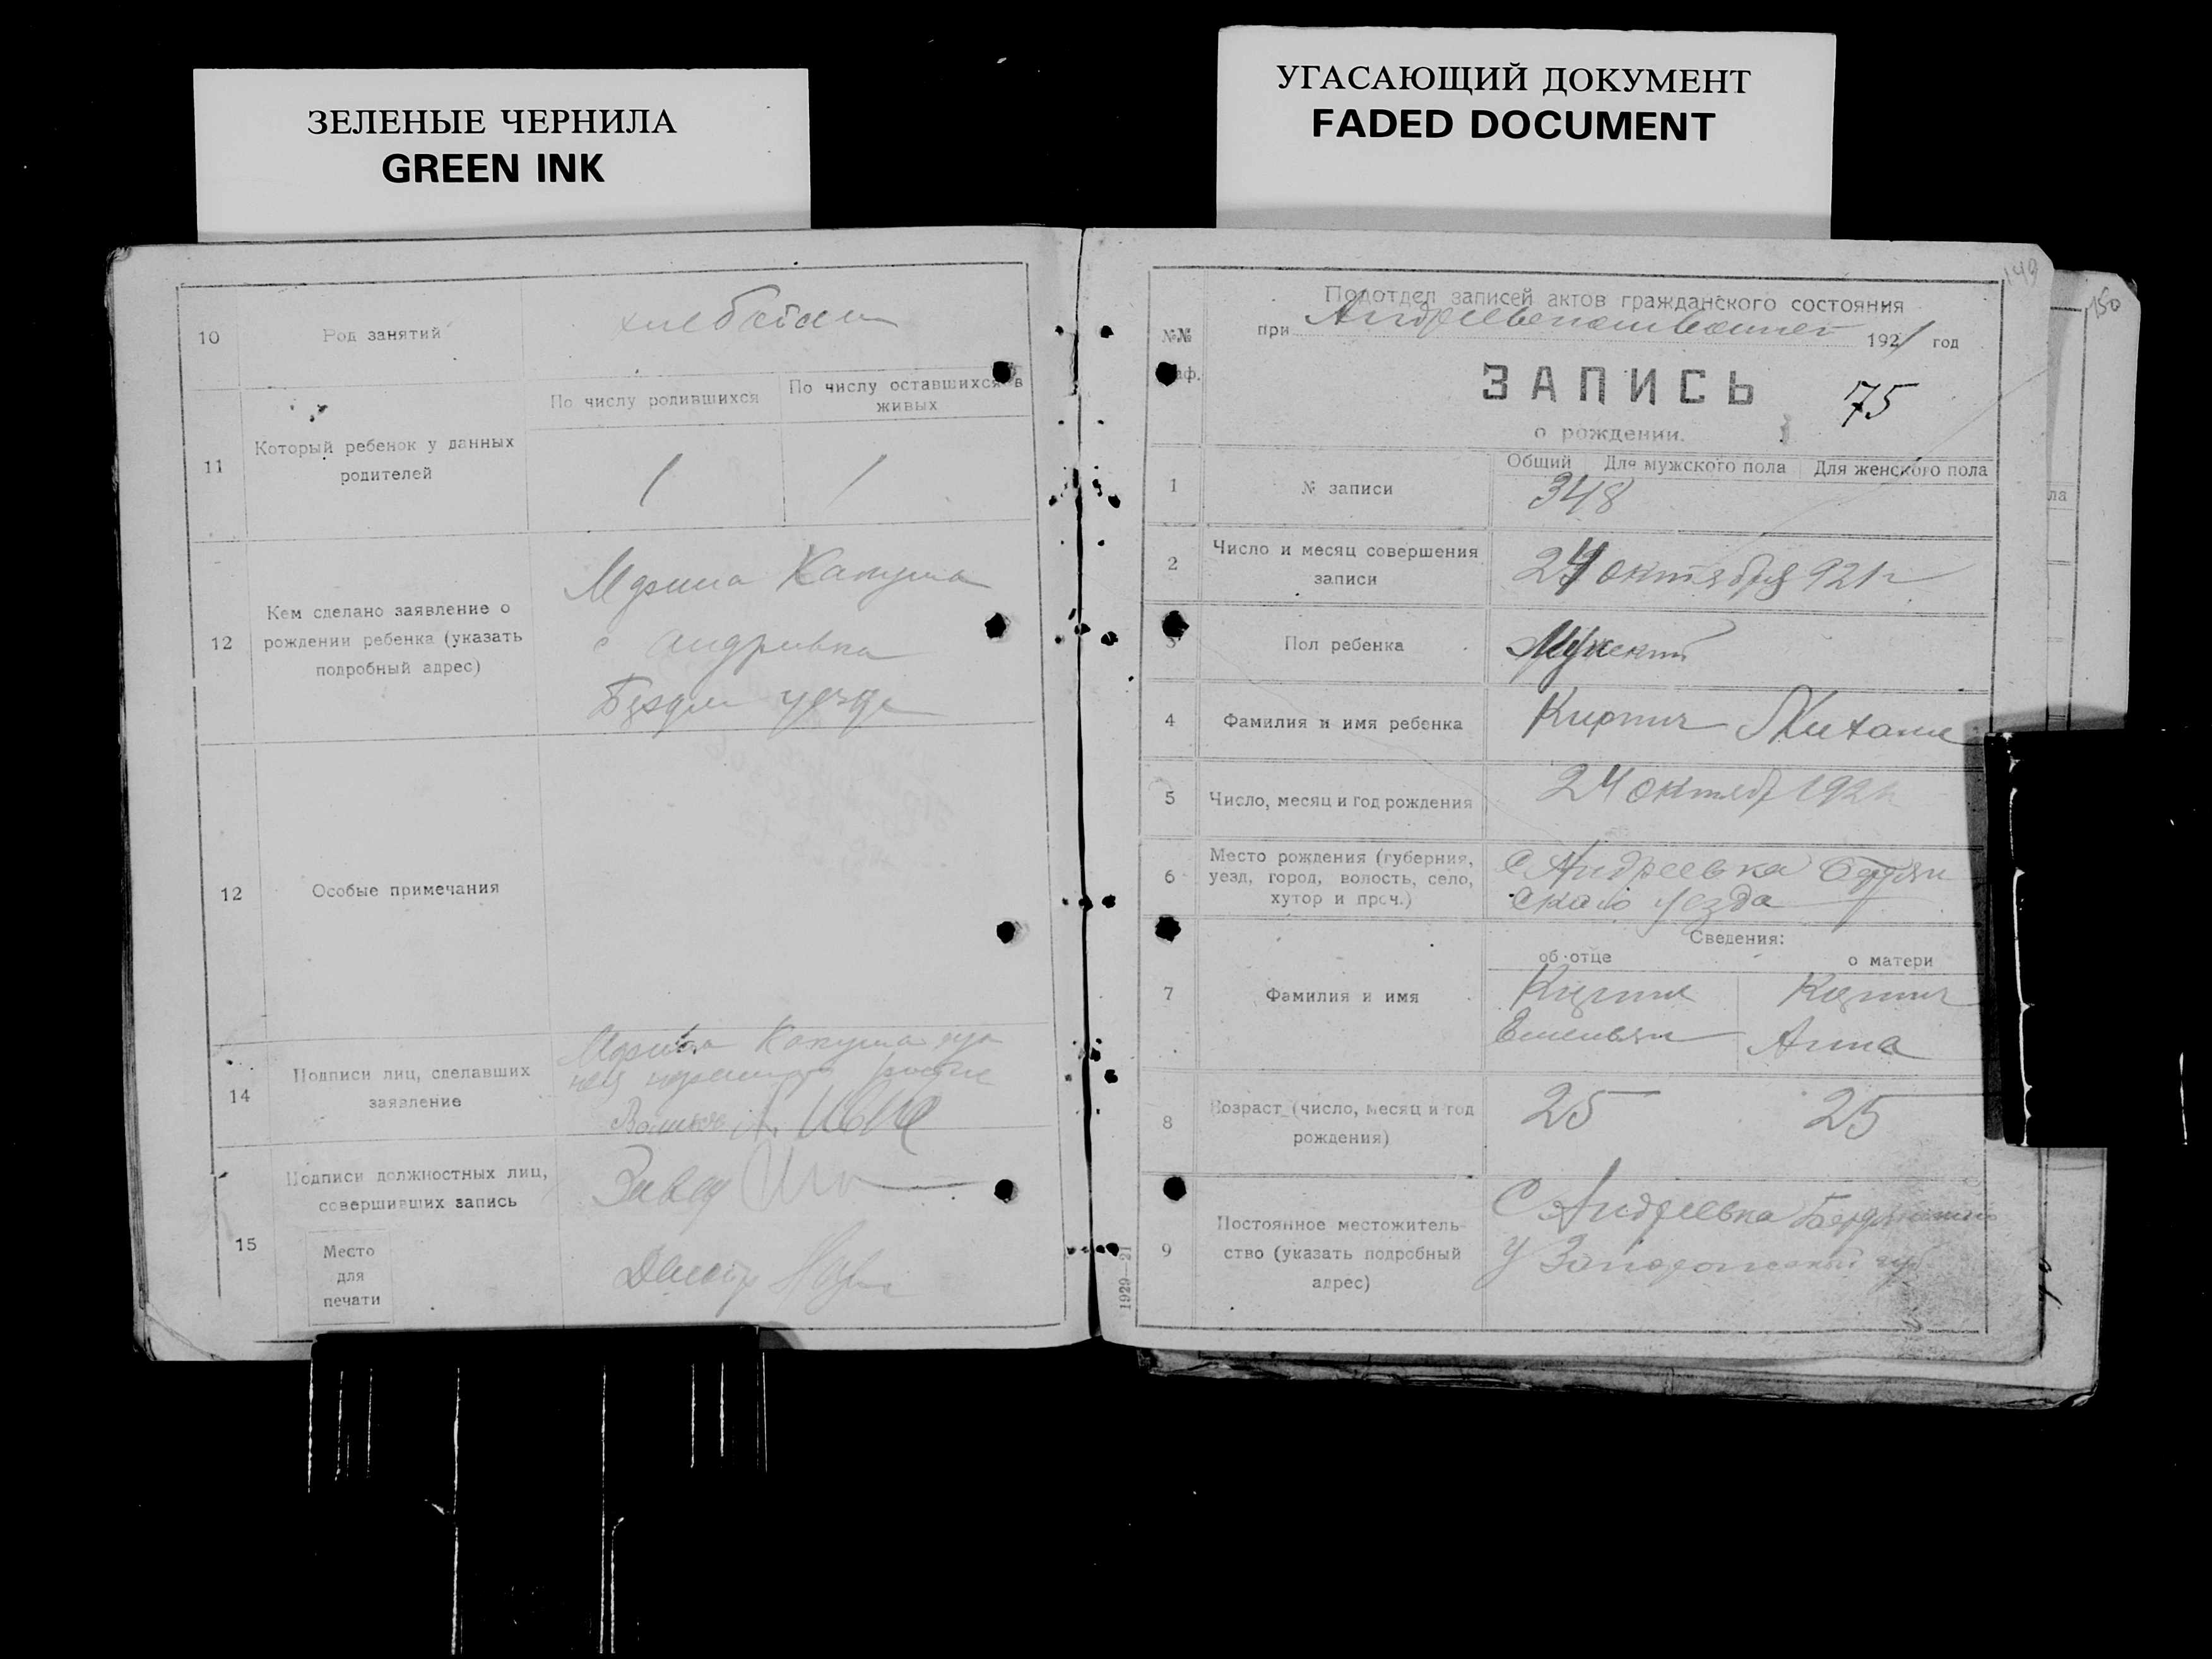 ЗЕЛЕНЫЕ ЧЕРНИЛА
GREEN INK
УГАСАЮЩИЙ ДОКУМЕНТ
FADED DOCUMENT
10
Род занятий
11
Который ребенок у данных
родителей
По числу родившихся
По числу оставшихся в
живых
1
1
12
Кем сделано заявление о
рождении ребенка (указать
подробный адрес)
с
12
Особые примечания
14
Подписи лиц, сделавших
заявление
15
Подписи должностных лиц,
совершивших запись
Место
для
печати
Завед
149
150
Подотдел записей актов гражданского состояния
№№
при
1921 год
ЗАПИСЬ
75
о рождении.
1
№ записи
Общий
Для мужского пола
Для женского пола
348
2
Число и месяц совершения
записи
24 октября 921 г
3
Пол ребенка
Мужской
4
Фамилия и имя ребенка
Кирпич Михаил
5
Число, месяц и год рождения
24 октяб 1921
6
Место рождения (губерния,
уезд, город, волость, село,
хутор и проч.)
с Андреевка Бердян
ского уезда
Сведения:
об отце
о матери
7
Фамилия и имя
Кирпич
Емельян
Кирпич
Анна
8
Возраст (число, месяц и год
рождения)
25
25
9
Постоянное местожитель-
ство (указать подробный
адрес)
с Андреевка
у Запорожской губ
1929—21